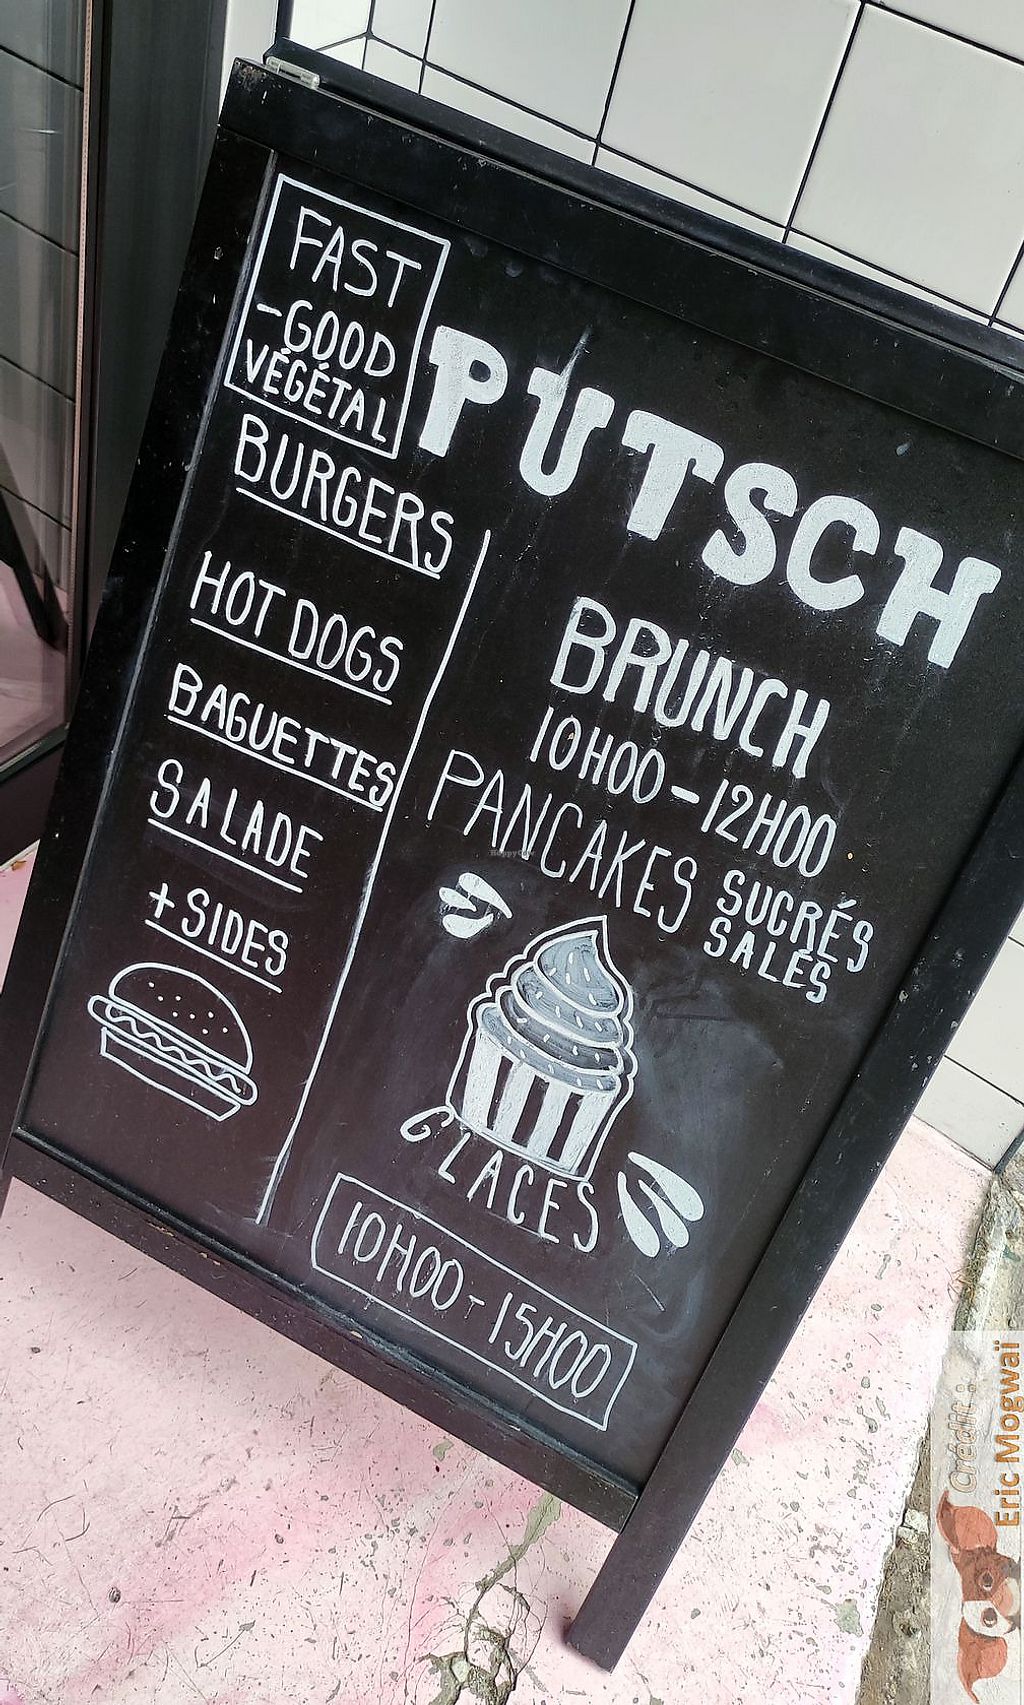 FAST
-GOOD
VÉGÉTAL
BURGERS
HOT DOGS
BAGUETTES
SALADE
+SIDES
PUTSCH
BRUNCH
10H00-12H00
PANCAKES SUCRÉS
SALÉS
GLACES
10H00-15H00
HappyCow
Crédit :
Eric Mogwaï